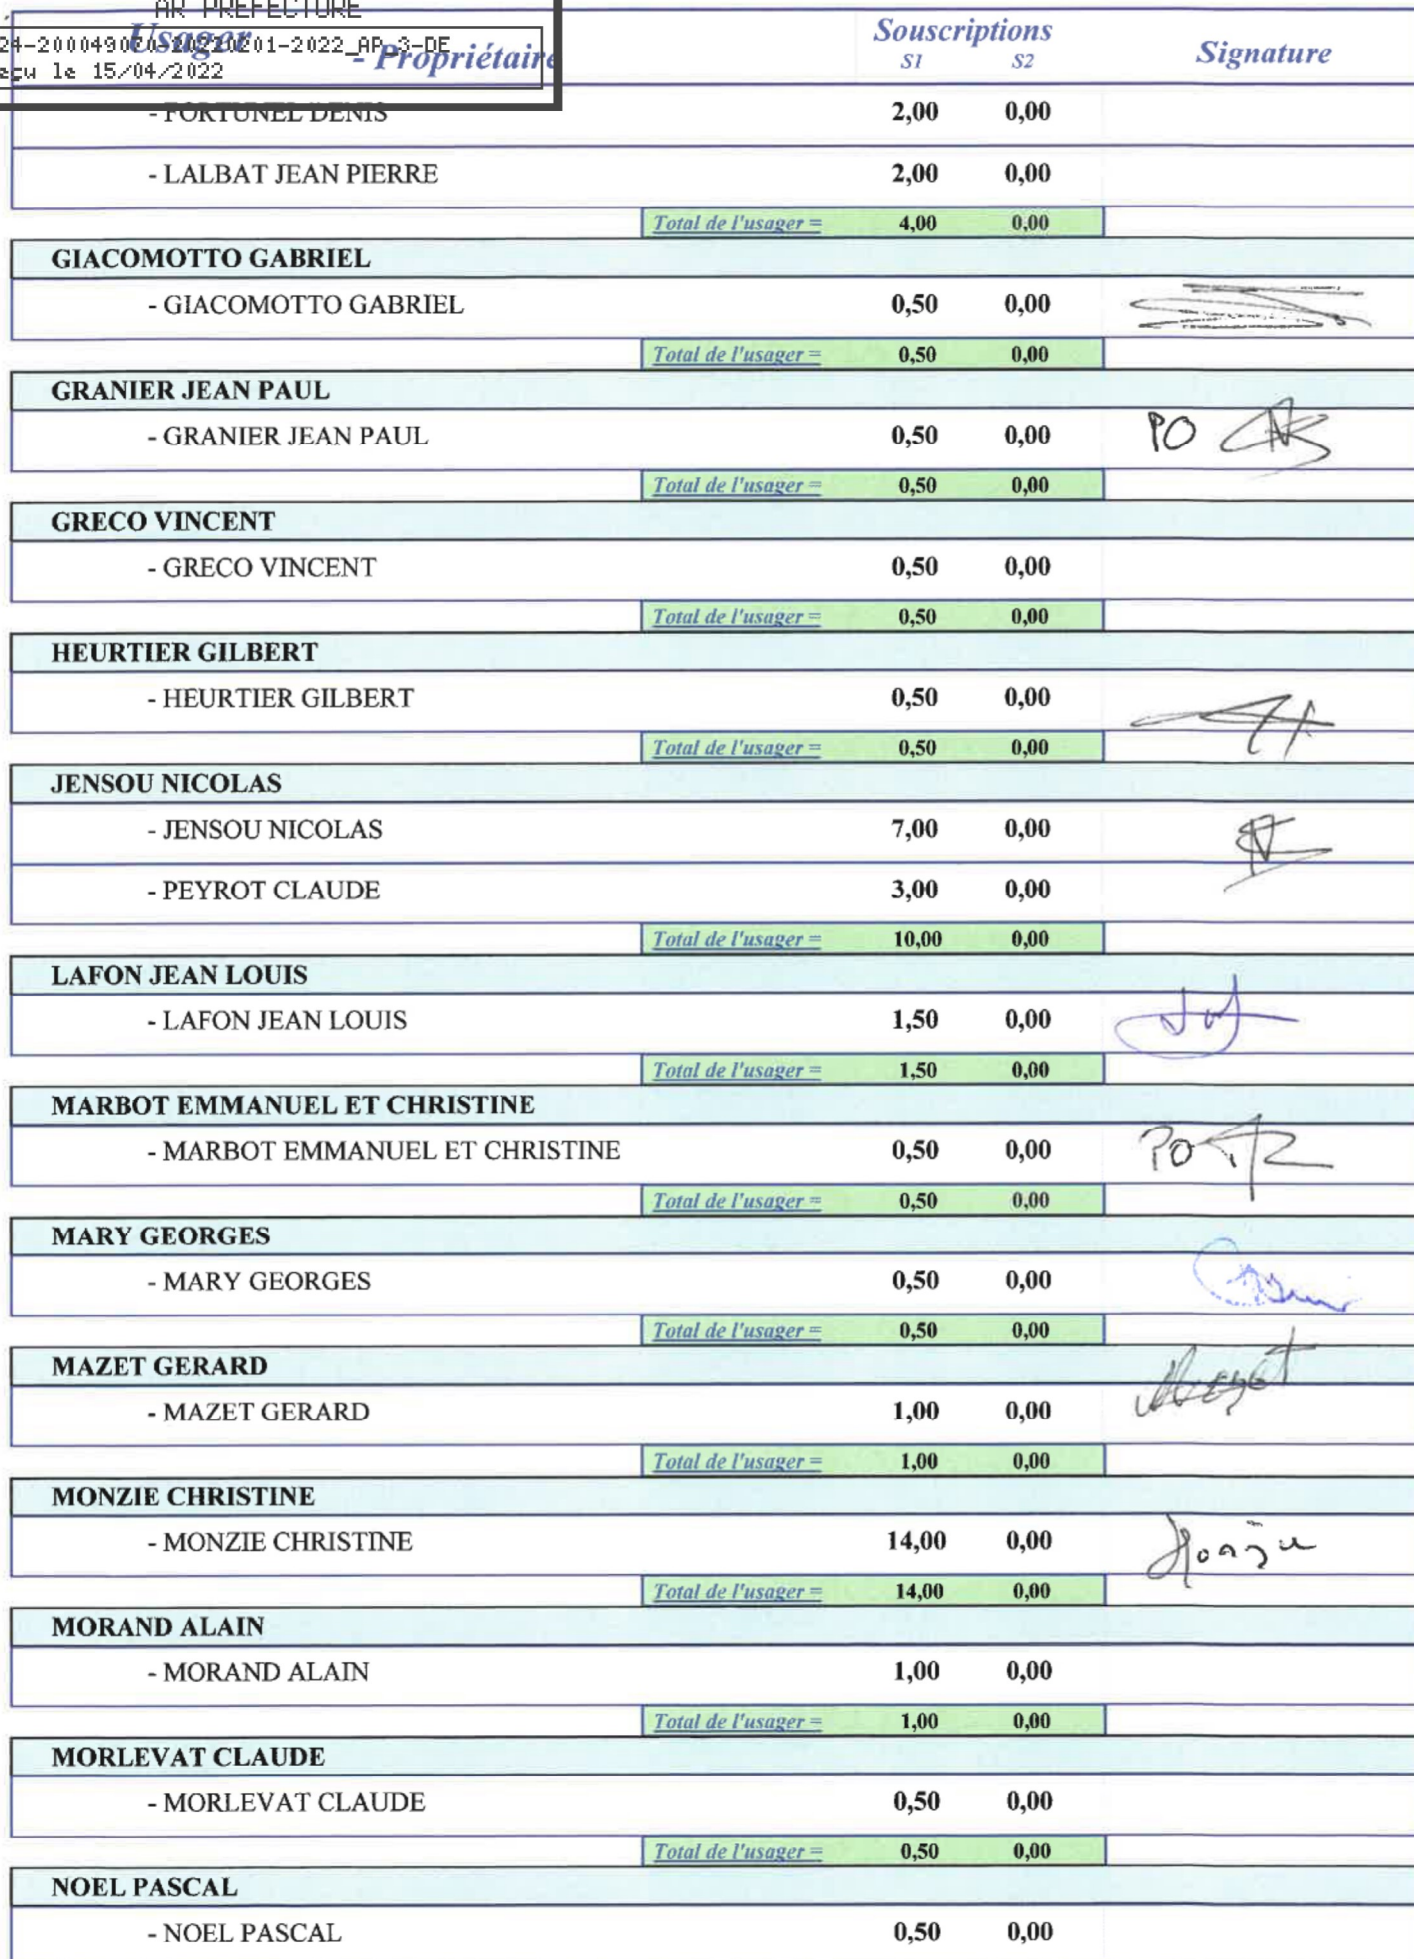 AR PREFECTURE
Usager - Propriétaire Souscriptions Signature
S1 S2
eçu le 15/04/2022
- FORTUNEL DENIS 2,00 0,00
- LALBAT JEAN PIERRE 2,00 0,00
Total de l'usager = 4,00 0,00
GIACOMOTTO GABRIEL
- GIACOMOTTO GABRIEL 0,50 0,00
Total de l'usager = 0,50 0,00
GRANIER JEAN PAUL
- GRANIER JEAN PAUL 0,50 0,00 PO
Total de l'usager = 0,50 0,00
GRECO VINCENT
- GRECO VINCENT 0,50 0,00
Total de l'usager = 0,50 0,00
HEURTIER GILBERT
- HEURTIER GILBERT 0,50 0,00
Total de l'usager = 0,50 0,00
JENSOU NICOLAS
- JENSOU NICOLAS 7,00 0,00
- PEYROT CLAUDE 3,00 0,00
Total de l'usager = 10,00 0,00
LAFON JEAN LOUIS
- LAFON JEAN LOUIS 1,50 0,00
Total de l'usager = 1,50 0,00
MARBOT EMMANUEL ET CHRISTINE
- MARBOT EMMANUEL ET CHRISTINE 0,50 0,00 PO
Total de l'usager = 0,50 0,00
MARY GEORGES
- MARY GEORGES 0,50 0,00
Total de l'usager = 0,50 0,00
MAZET GERARD
- MAZET GERARD 1,00 0,00
Total de l'usager = 1,00 0,00
MONZIE CHRISTINE
- MONZIE CHRISTINE 14,00 0,00
Total de l'usager = 14,00 0,00
MORAND ALAIN
- MORAND ALAIN 1,00 0,00
Total de l'usager = 1,00 0,00
MORLEVAT CLAUDE
- MORLEVAT CLAUDE 0,50 0,00
Total de l'usager = 0,50 0,00
NOEL PASCAL
- NOEL PASCAL 0,50 0,00